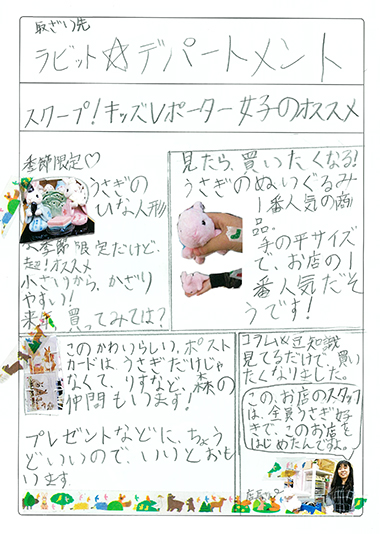 取ざい先
ラビット☆デパートメント
スクープ!キッズレポーター女子のオススメ
季節限定♡
うさぎの
ひな人形
季節限定だけど、
超!オススメ
小さいから、かざり
やすい!
買ってみては?
見たら、買いたくなる!
うさぎのぬいぐるみ
1番人気の商
品。
手の平サイズ
で、お店の1
番人気だそ
うです!
このかわいらしい、ポスト
カードは、うさぎだけじゃ
なくて、りすなど、森の
仲間もいます!
プレゼントなどに、ちょう
どいいので、いいとおも
います
コラム&豆知識
見てるだけで、買い
たくなりました。
この、お店のスタッフ
は、全員うさぎ好
きで、このお店を
はじめたんですよ。